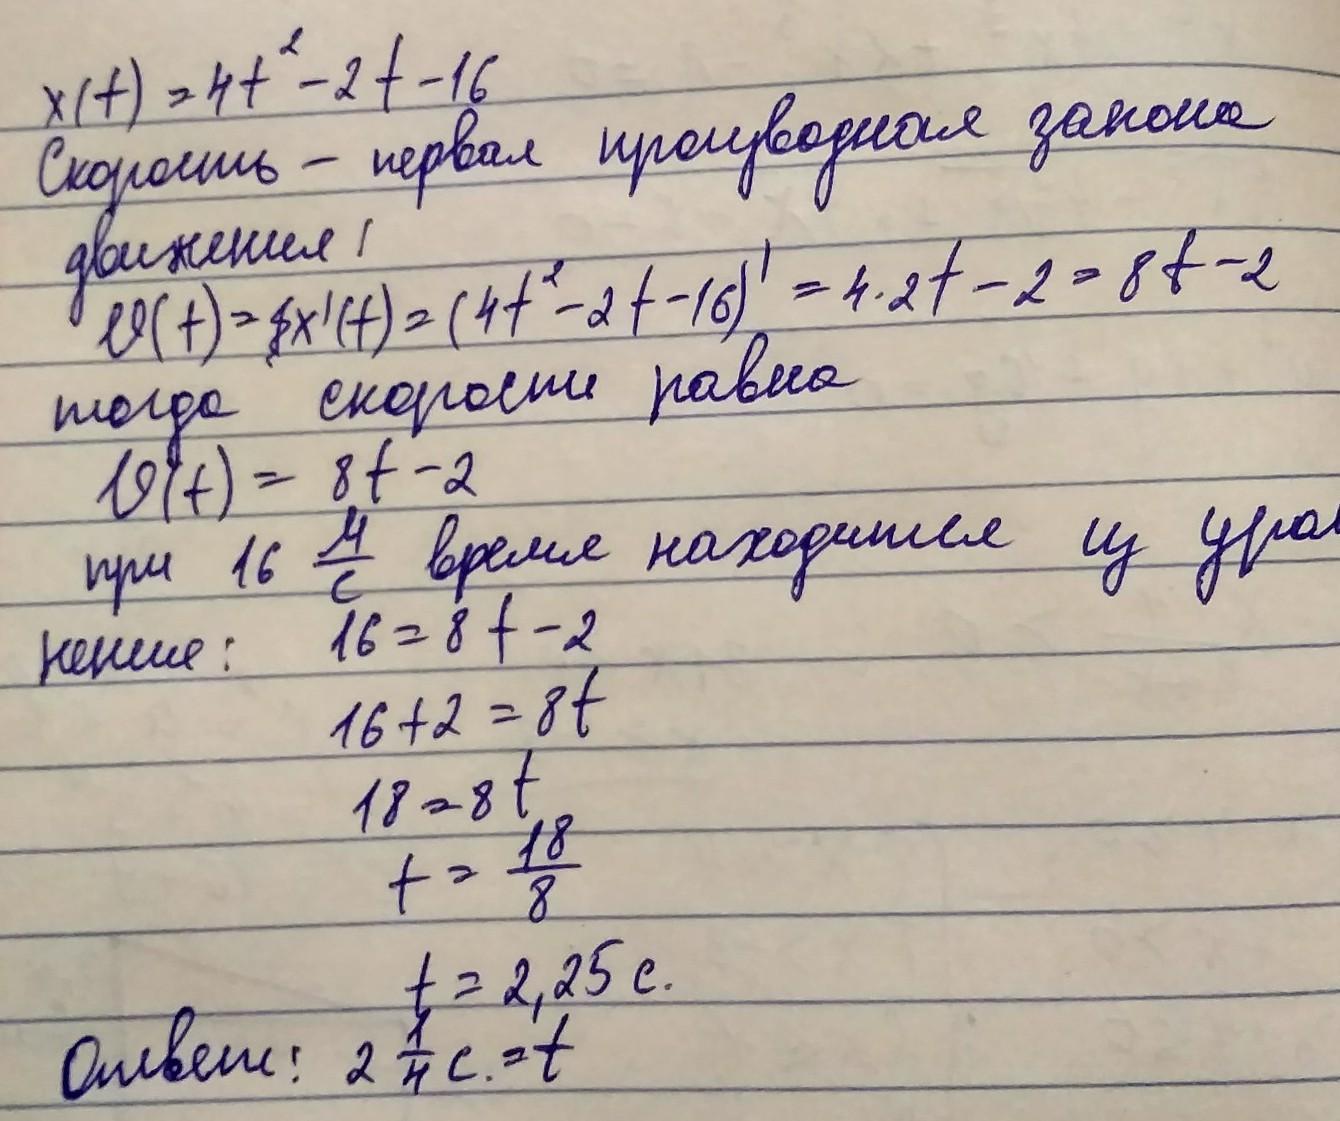 x(t) = 4t² - 2t - 16
Скорость – первая производная закона
движения!
V(t) = x'(t) = (4t² - 2t - 16)' = 4·2t - 2 = 8t - 2
тогда скорости равна
V(t) = 8t - 2
при 16 м/с время находится из урав
нение: 16 = 8t - 2
16 + 2 = 8t
18 = 8t
t = 18/8
t = 2,25 с.
Ответ: 2 1/4 с. = t